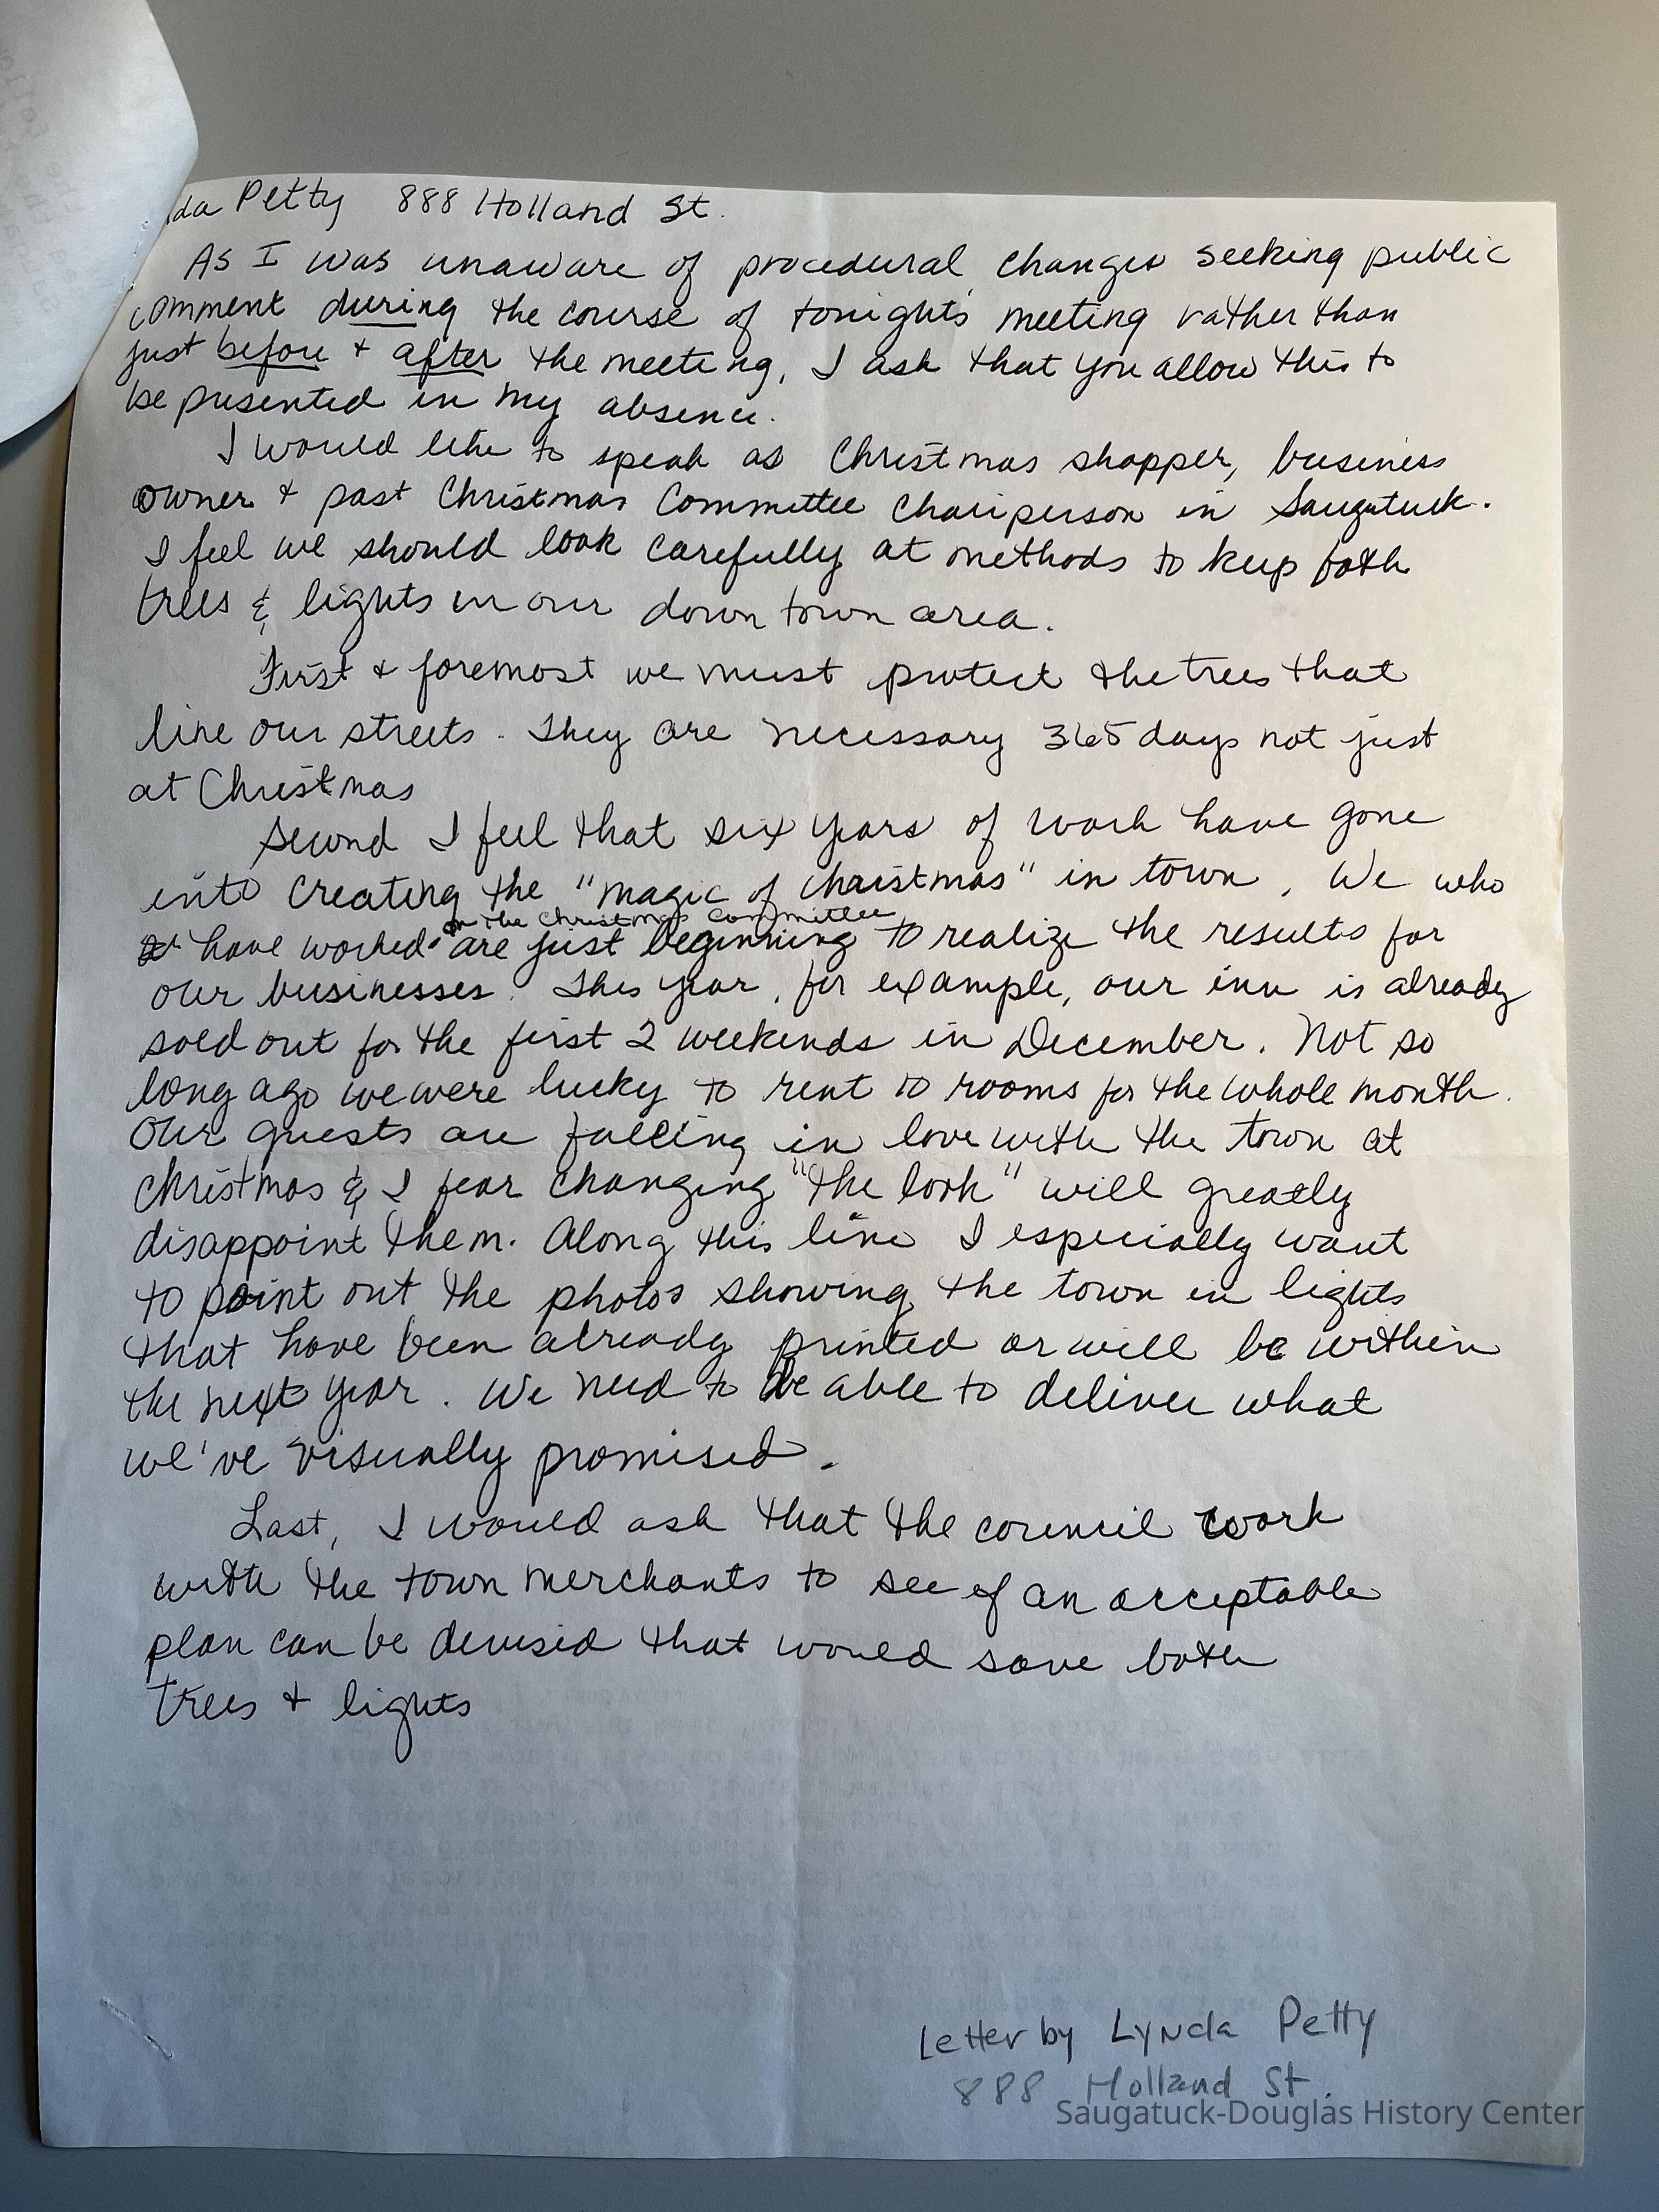 da Petty 888 Holland St.
As I was unaware of procedural changes seeking public
comment during the course of tonight's meeting rather than
just before + after the meeting, I ask that you allow this to
be presented in my absence.
I would like to speak as Christmas shopper, business
owner + past Christmas Committee Chairperson in Saugatuck.
I feel we should look carefully at methods to keep both
trees & lights in our down town area.
First + foremost we must protect the trees that
line our streets. They are necessary 365 days not just
at Christmas
Second I feel that six years of work have gone
into creating the "magic of Christmas" in town. We who
on the Christmas Committee
have worked are just beginning to realize the results for
our businesses. This year, for example, our inn is already
sold out for the first 2 weekends in December. Not so
long ago we were lucky to rent 10 rooms for the whole month.
Our guests are falling in love with the town at
Christmas & I fear changing "the look" will greatly
disappoint them. Along this line I especially want
to point out the photos showing the town in lights
that have been already printed or will be within
the next year. We need to be able to deliver what
we've visually promised.
Last, I would ask that the council work
with the town merchants to see if an acceptable
plan can be devised that would save both
trees + lights
Letter by Lynda Petty
888 Holland St.
Saugatuck-Douglas History Center